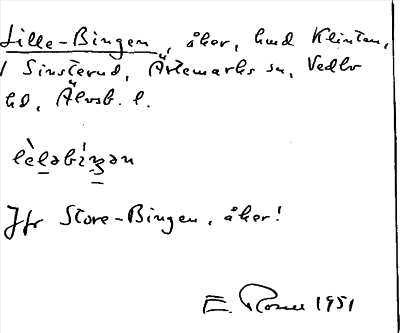 Lille-Bingen, åker, hmd Klinten,
1 Sinsterud, Ärtemarks sn, Vedbo
hd, Älvsb. l.
lèləbiŋən
Jfr Store-Bingen, åker!
E. Rosell 1951